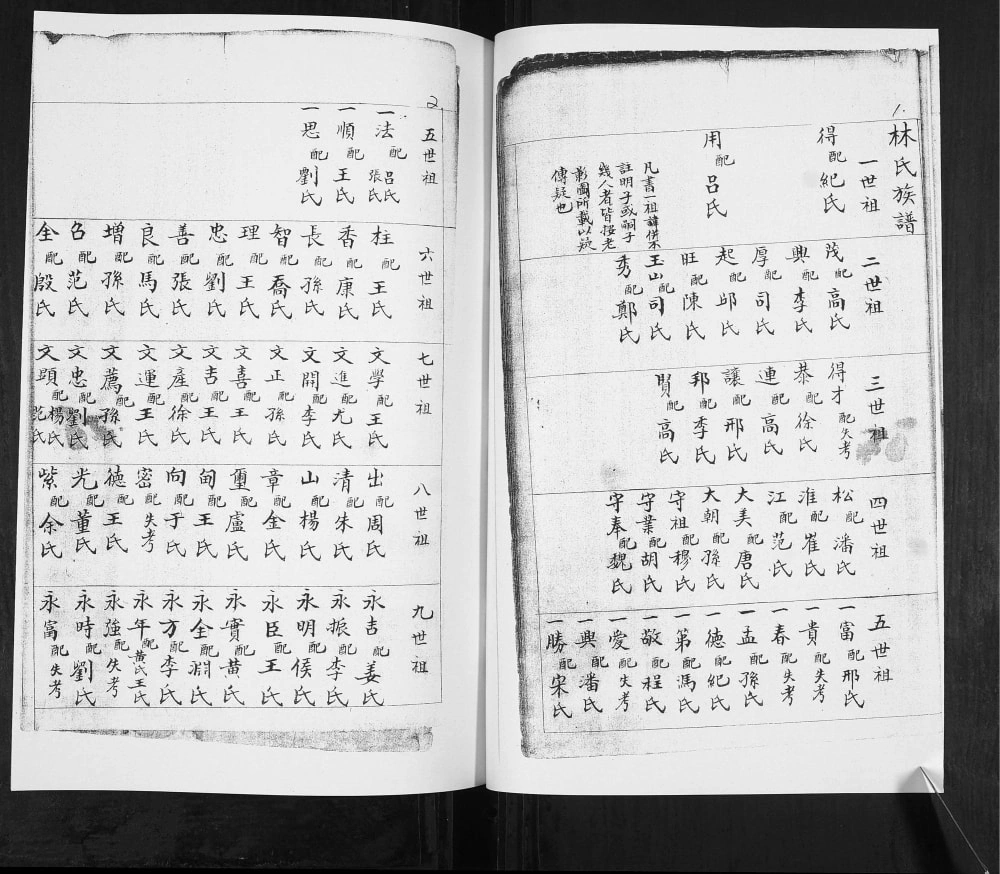 1.
林氏族譜
一世祖
得配紀氏
用配呂氏
凡書一祖諱併不
註明子或嗣子
幾人者皆按老
影圖所載以疑
傳疑也
二世祖
茂配高氏
興配李氏
厚配司氏
起配邱氏
旺配陳氏
玉山配司氏
秀配鄭氏
三世祖
得才配失考
恭配徐氏
連配高氏
讓配邢氏
邦配季氏
賢配高氏
四世祖
松配潘氏
淮配崔氏
江配范氏
大美配唐氏
大朝配孫氏
守祖配穆氏
守業配胡氏
守奉配魏氏
五世祖
一富配邢氏
一貴配失考
一春配失考
一孟配孫氏
一德配紀氏
一第配馮氏
一敬配程氏
一愛配失考
一興配潘氏
一勝配宋氏
2
五世祖
一法配呂氏張氏
一順配王氏
一思配劉氏
六世祖
柱配王氏
香配康氏
長配孫氏
智配喬氏
理配王氏
忠配劉氏
善配張氏
良配馬氏
增配孫氏
召配范氏
全配殷氏
七世祖
文學配王氏
文進配尤氏
文開配李氏
文正配孫氏
文喜配王氏
文吉配王氏
文產配徐氏
文運配王氏
文薦配孫氏
文忠配劉氏
文顕配楊氏范氏
八世祖
出配周氏
清配朱氏
山配楊氏
章配金氏
璽配盧氏
甸配王氏
向配于氏
密配失考
德配王氏
光配董氏
紫配余氏
九世祖
永吉配姜氏
永振配李氏
永明配侯氏
永臣配王氏
永實配黄氏
永全配淵氏
永方配李氏
永年配黄氏王氏
永強配失考
永時配劉氏
永富配失考